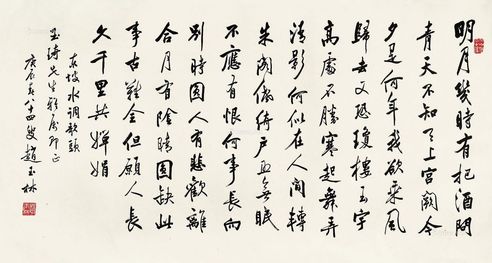 明月幾時有把酒問
青天不知天上宮闕今
夕是何年我欲乘風
歸去又恐瓊樓玉宇
高處不勝寒起舞弄
清影何似在人間轉
朱閣低綺戶照無眠
不應有恨何事長向
別時圓人有悲歡離
合月有陰晴圓缺此
事古難全但願人長
久千里共嬋娟
東坡水調歌頭
先生雅屬即正
庚辰春八十四叟趙玉林